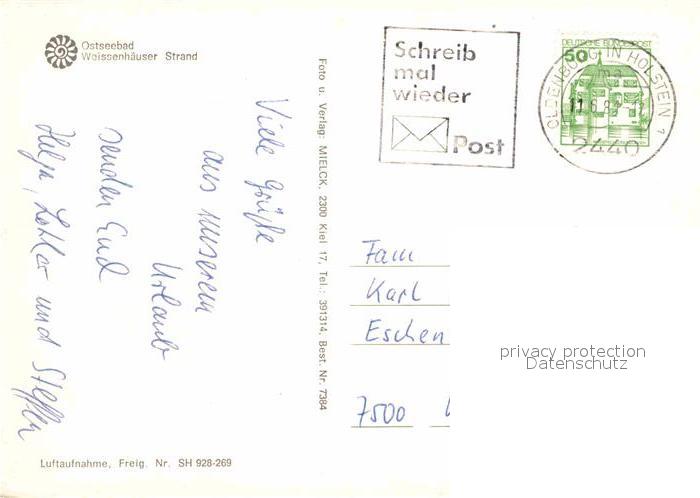 Ostseebad
Weissenhäuser Strand
Viele Grüße
aus unserem
Urlaub
senden Euch
Helga, Lothar und Steffen
Luftaufnahme, Freig. Nr. SH 928-269
Foto u. Verlag: MIELCK, 2300 Kiel 17, Tel.: 391314, Best. Nr. 7384
Schreib
mal
wieder
Post
DEUTSCHE BUNDESPOST
50
OLDENBURG IN HOLSTEIN 1
2440
Fam
Karl
Eschen
7500
privacy protection
Datenschutz